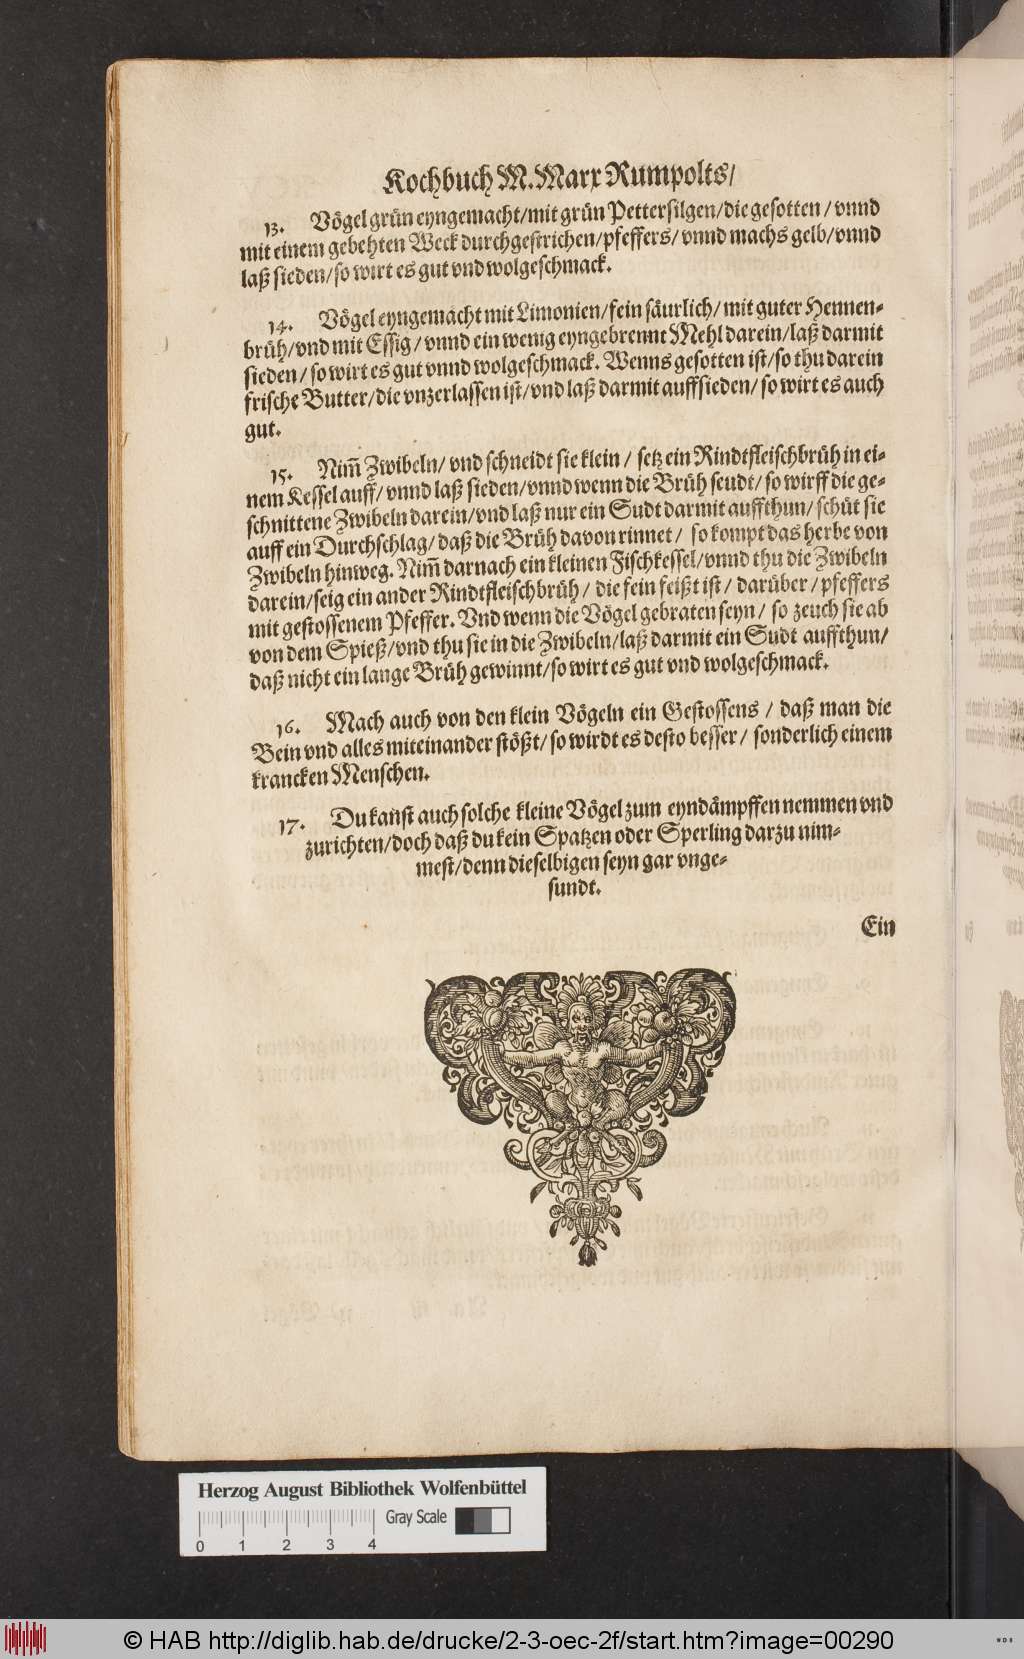 Kochbuch M. Marx Rumpolts/
13. Vögel grün eyngemacht/mit grün Pettersilgen/die gesotten / vnnd
mit einem gebehten Weck durchgestrichen/pfeffers/ vnnd machs gelb/vnnd
laß sieden/so wirt es gut vnd wolgeschmack.
14. Vögel eyngemacht mit Limonien/fein säurlich/ mit guter Hennen-
brüh/vnd mit Essig / vnnd ein wenig eyngebrennt Mehl darein/laß darmit
sieden / so wirt es gut vnnd wolgeschmack. Wenns gesotten ist/so thu darein
frische Butter/die vnzerlassen ist/vnd laß darmit auffsieden/ so wirt es auch
gut.
15. Nim̃ Zwibeln/ vnd schneidt sie klein / setz ein Rindtfleischbrüh in ei-
nem Kessel auff/ vnnd laß sieden/vnnd wenn die Brüh seudt/ so wirff die ge-
schnittene Zwibeln darein/vnd laß nur ein Sudt darmit auffthun/ schüt sie
auff ein Durchschlag/ daß die Brüh davon rinnet / so kompt das herbe von
Zwibeln hinweg. Nim̃ darnach ein kleinen Fischkessel/vnnd thu die Zwibeln
darein/seig ein ander Rindtfleischbrüh / die fein feißt ist / darüber / pfeffers
mit gestossenem Pfeffer. Vnd wenn die Vögel gebraten seyn / so zeuch sie ab
von dem Spieß/vnd thu sie in die Zwibeln/laß darmit ein Sudt auffthun/
daß nicht ein lange Brüh gewinnt/so wirt es gut vnd wolgeschmack.
16. Mach auch von den klein Vögeln ein Gestossens / daß man die
Bein vnd alles miteinander stößt/ so wirdt es desto besser / sonderlich einem
krancken Menschen.
17. Du kañst auch solche kleine Vögel zum eyndämpffen nemmen vnd
zurichten/doch daß du kein Spatzen oder Sperling darzu nim-
mest/denn dieselbigen seyn gar vnge-
sundt.
Ein
Herzog August Bibliothek Wolfenbüttel
Gray Scale
0 1 2 3 4
© HAB http://diglib.hab.de/drucke/2-3-oec-2f/start.htm?image=00290